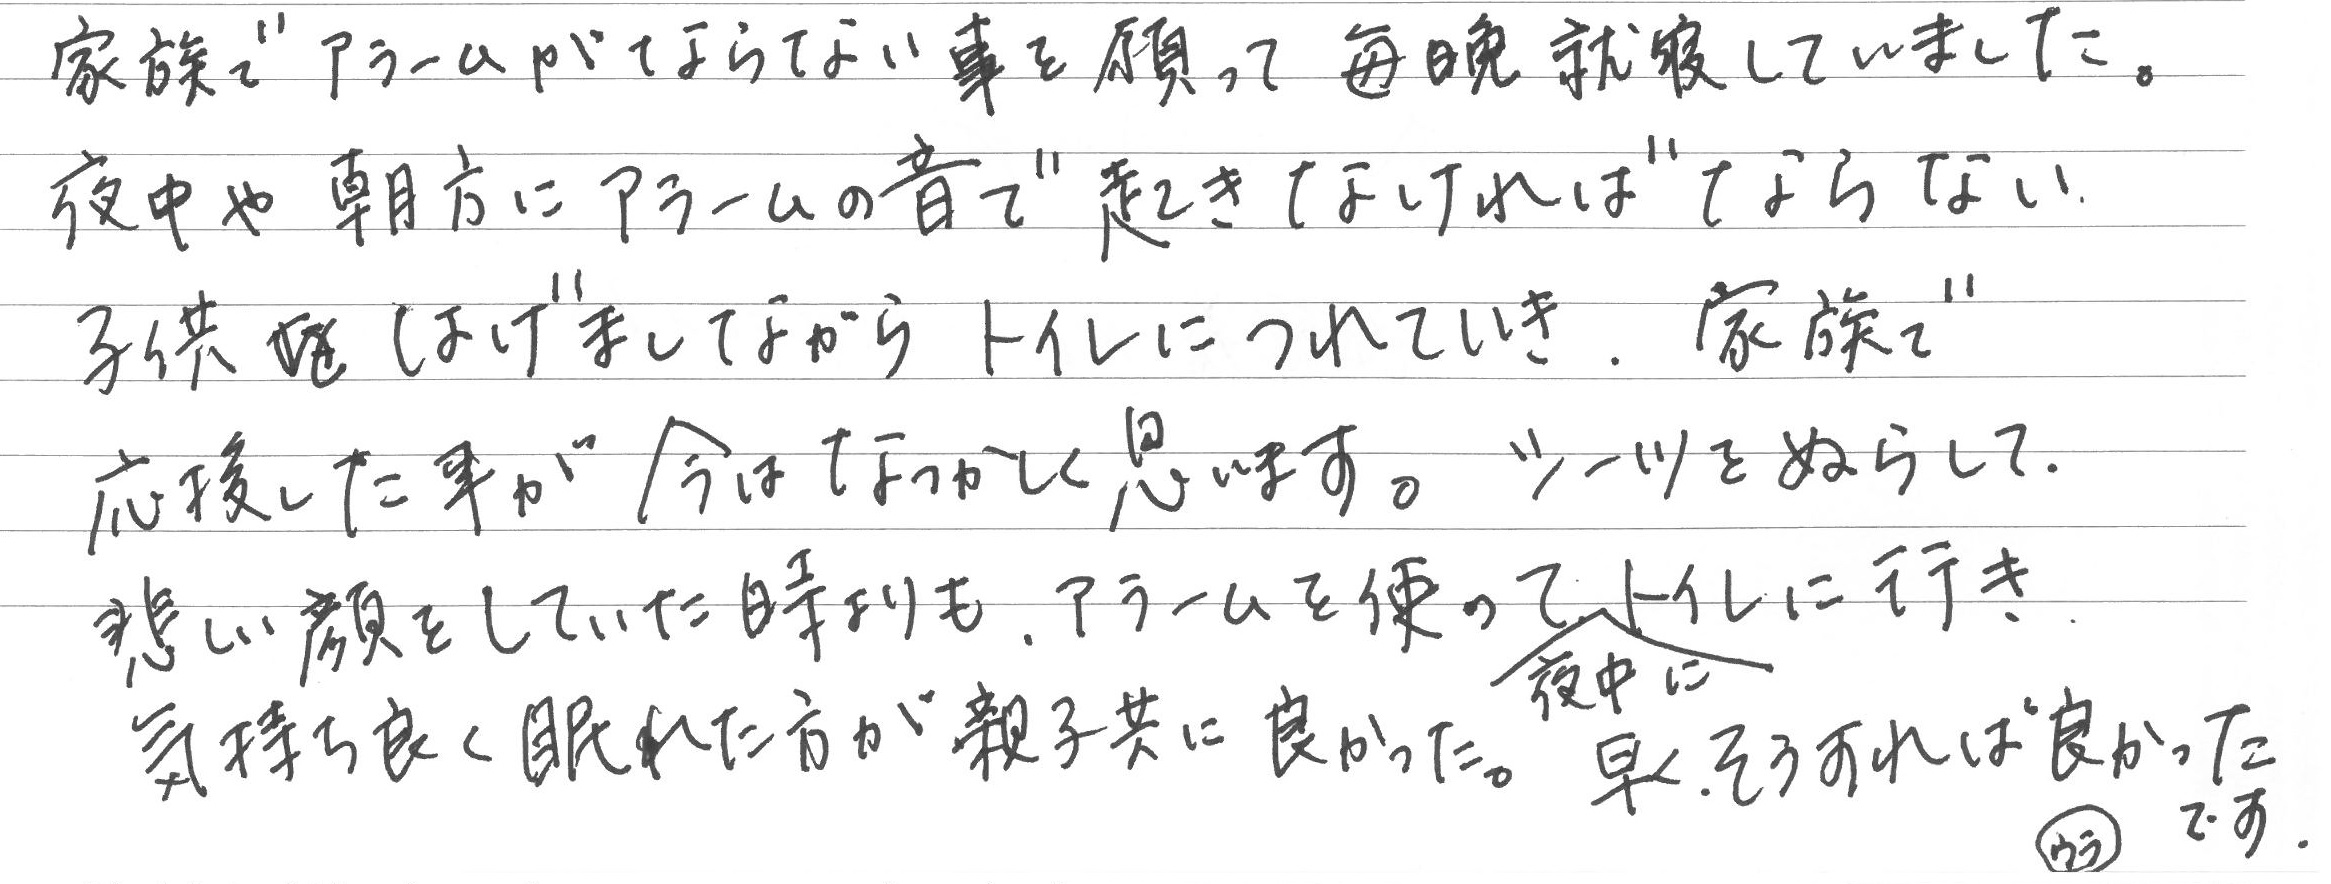 家族でアラームがならない事を願って毎晩就寝していました。
夜中や朝方にアラームの音で起きなければならない
子供をはげましながらトイレにつれていき、家族で
応援した事が今はなつかしく思います。シーツをぬらして、
悲しい顔をしていた時よりも、アラームを使って、トイレに行き、
夜中に
気持ち良く眠れた方が親子共に良かった。早く、そうすれば良かった
です。
ウラ